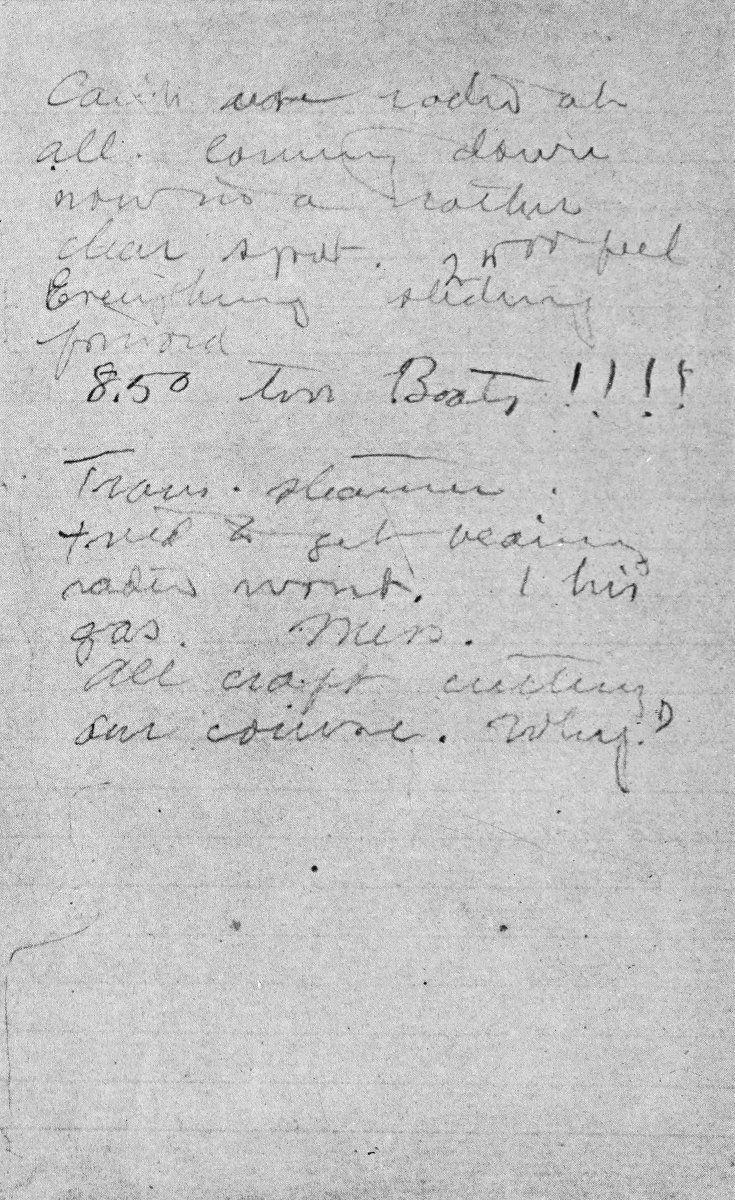 Can't use radio at
all. Coming down
now in a rather
clear spot. 2500 feel
Everything sliding
forward
8.50 two Boats!!!!
Trans. steamer.
tried to get bearing
radio wont. 1 hr's
gas. Mess.
All craft cutting
our course. Why?